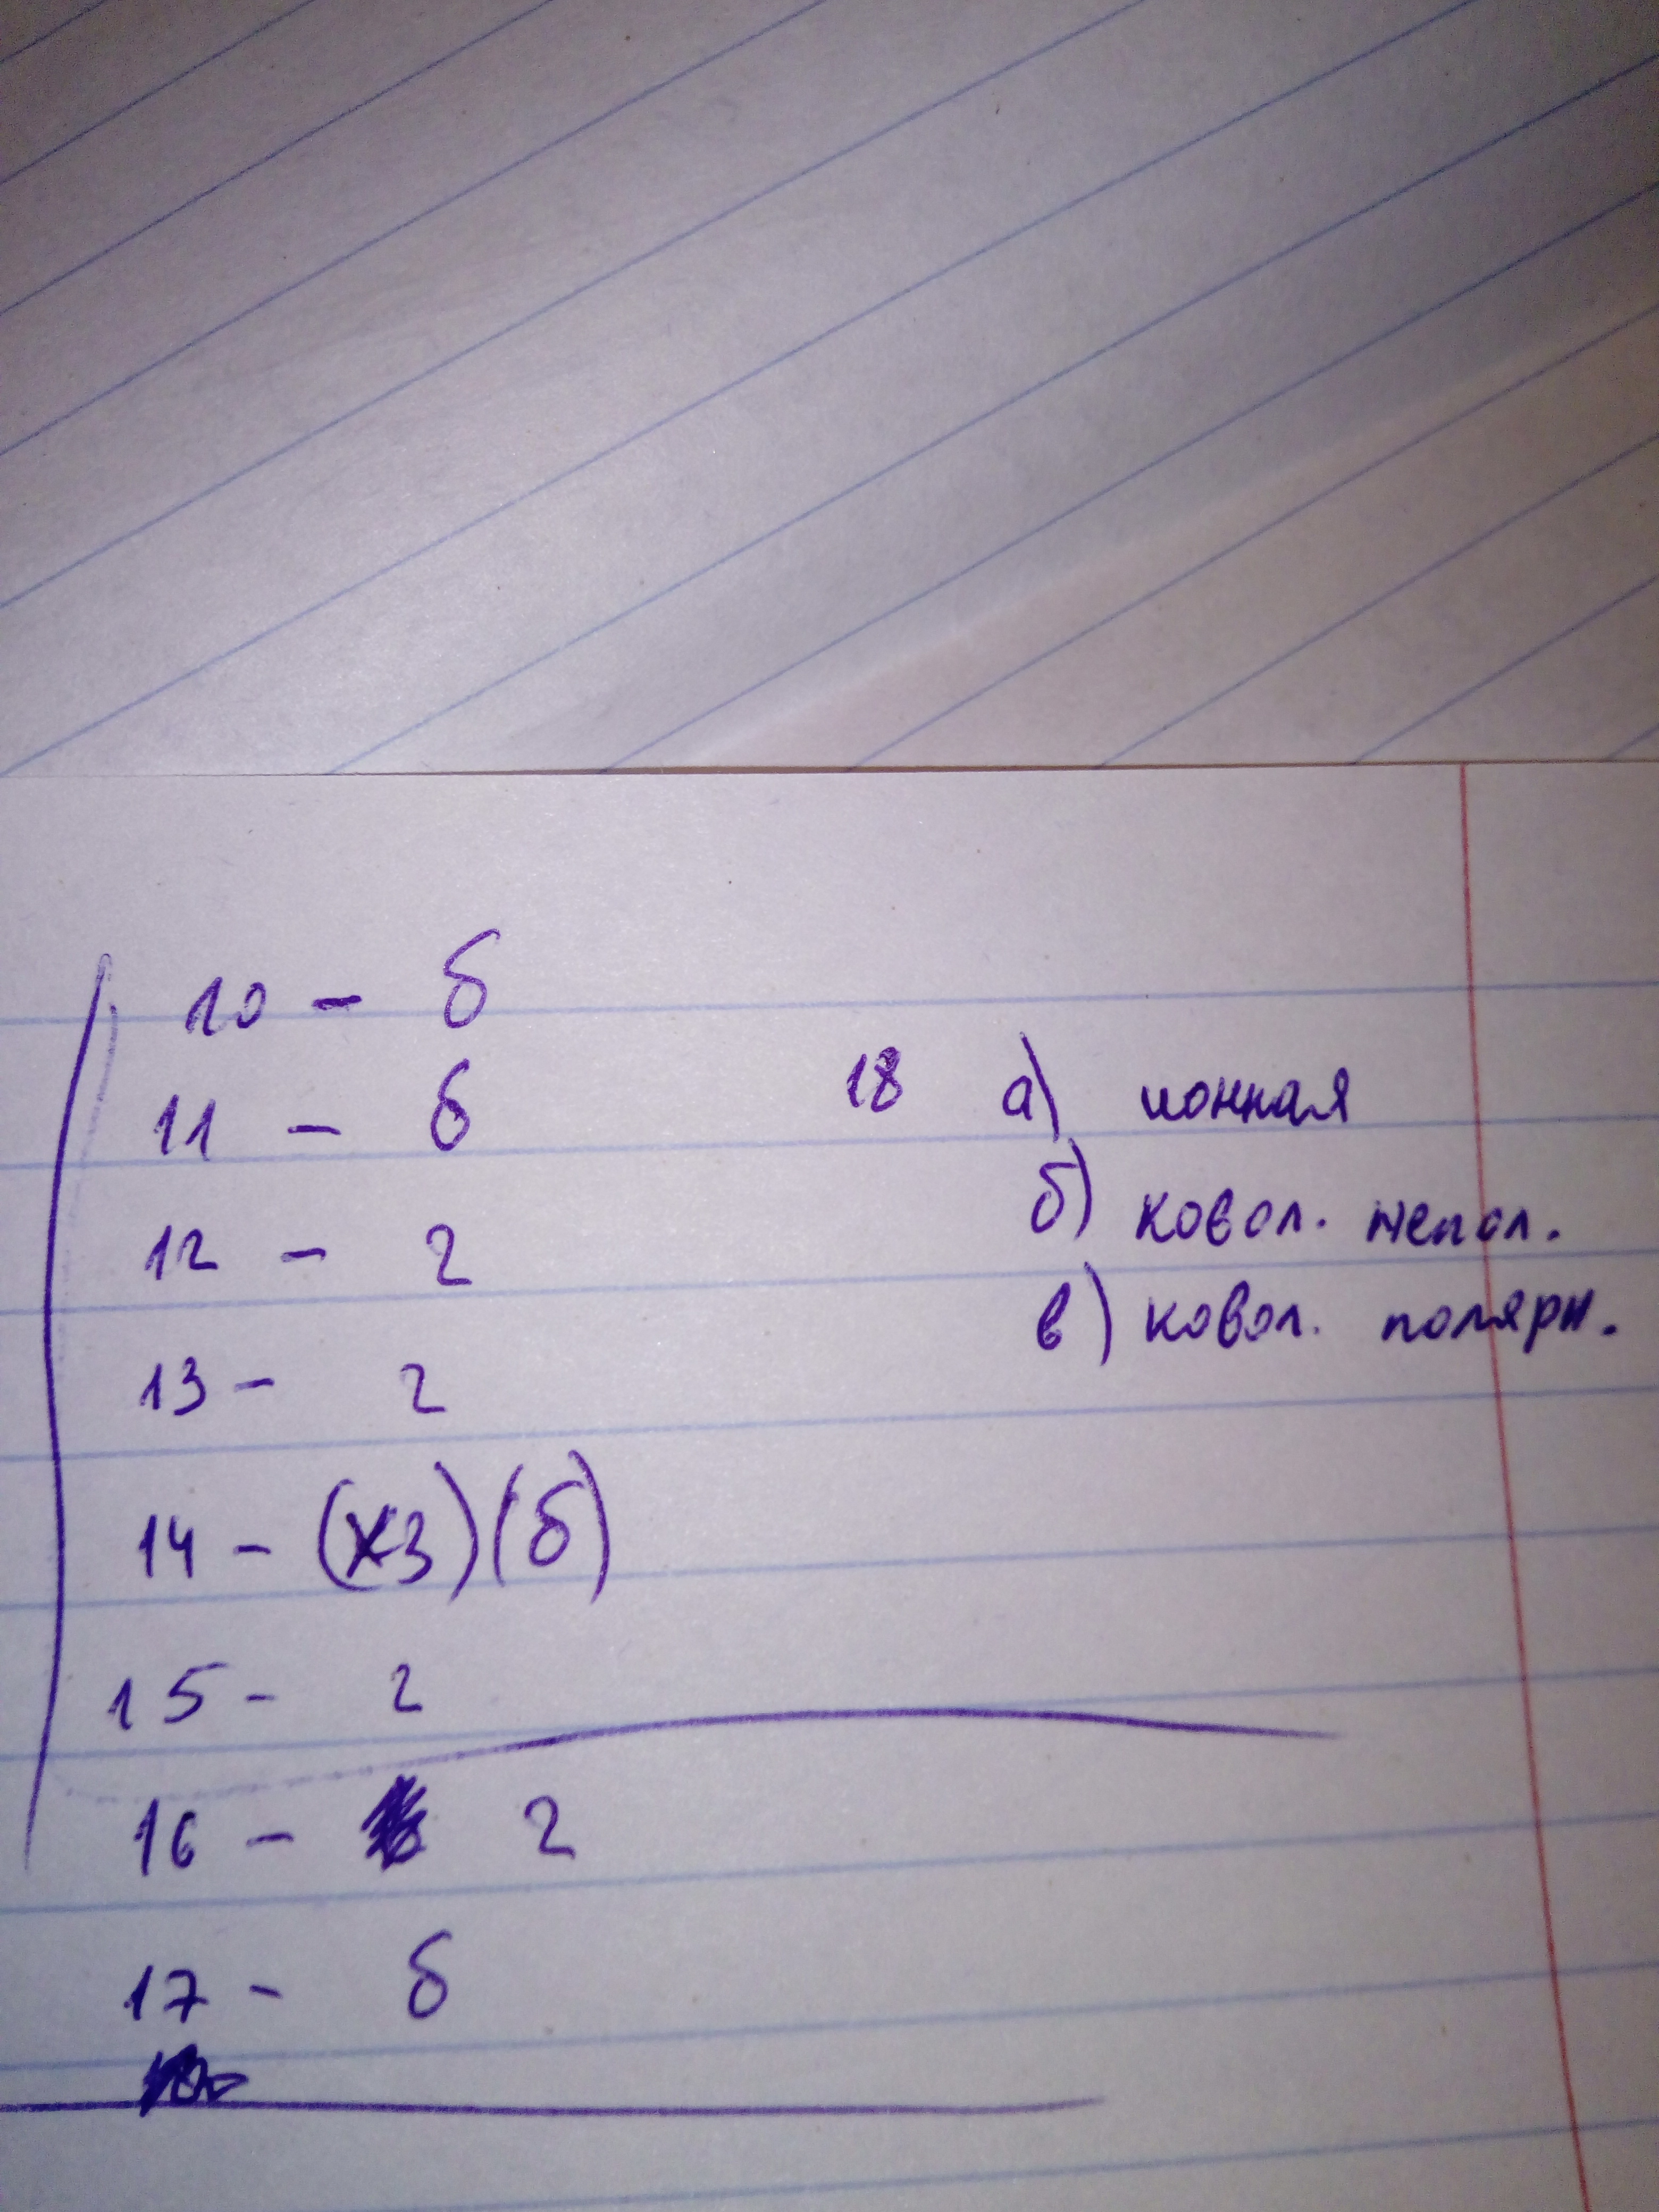 10 - б
11 - б
12 - г
13 - г
14 - (хз) (б)
15 - г
16 - г
17 - б
18 а) ионная
б) ковол. непол.
в) ковол. полярн.